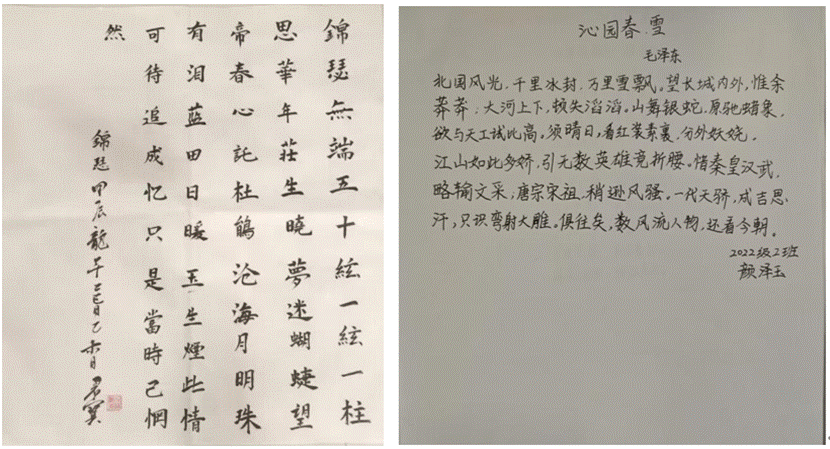 錦瑟無端五十絃一絃一柱
思華年莊生曉夢迷蝴蝶望
帝春心託杜鵑沧海月明珠
有泪蓝田日暖玉生煙此情
可待追成忆只是當時已惘
然
錦瑟甲辰龍年
沁园春·雪
毛泽东
北国风光，千里冰封，万里雪飘。望长城内外，惟余
莽莽；大河上下，顿失滔滔。山舞银蛇，原驰蜡象，
欲与天工试比高。须晴日，看红装素裹，分外妖娆。
江山如此多娇，引无数英雄竞折腰。惜秦皇汉武，
略输文采；唐宗宋祖，稍逊风骚。一代天骄，成吉思
汗，只识弯射大雕。俱往矣，数风流人物，还看今朝。
2022级2班
颜泽玉